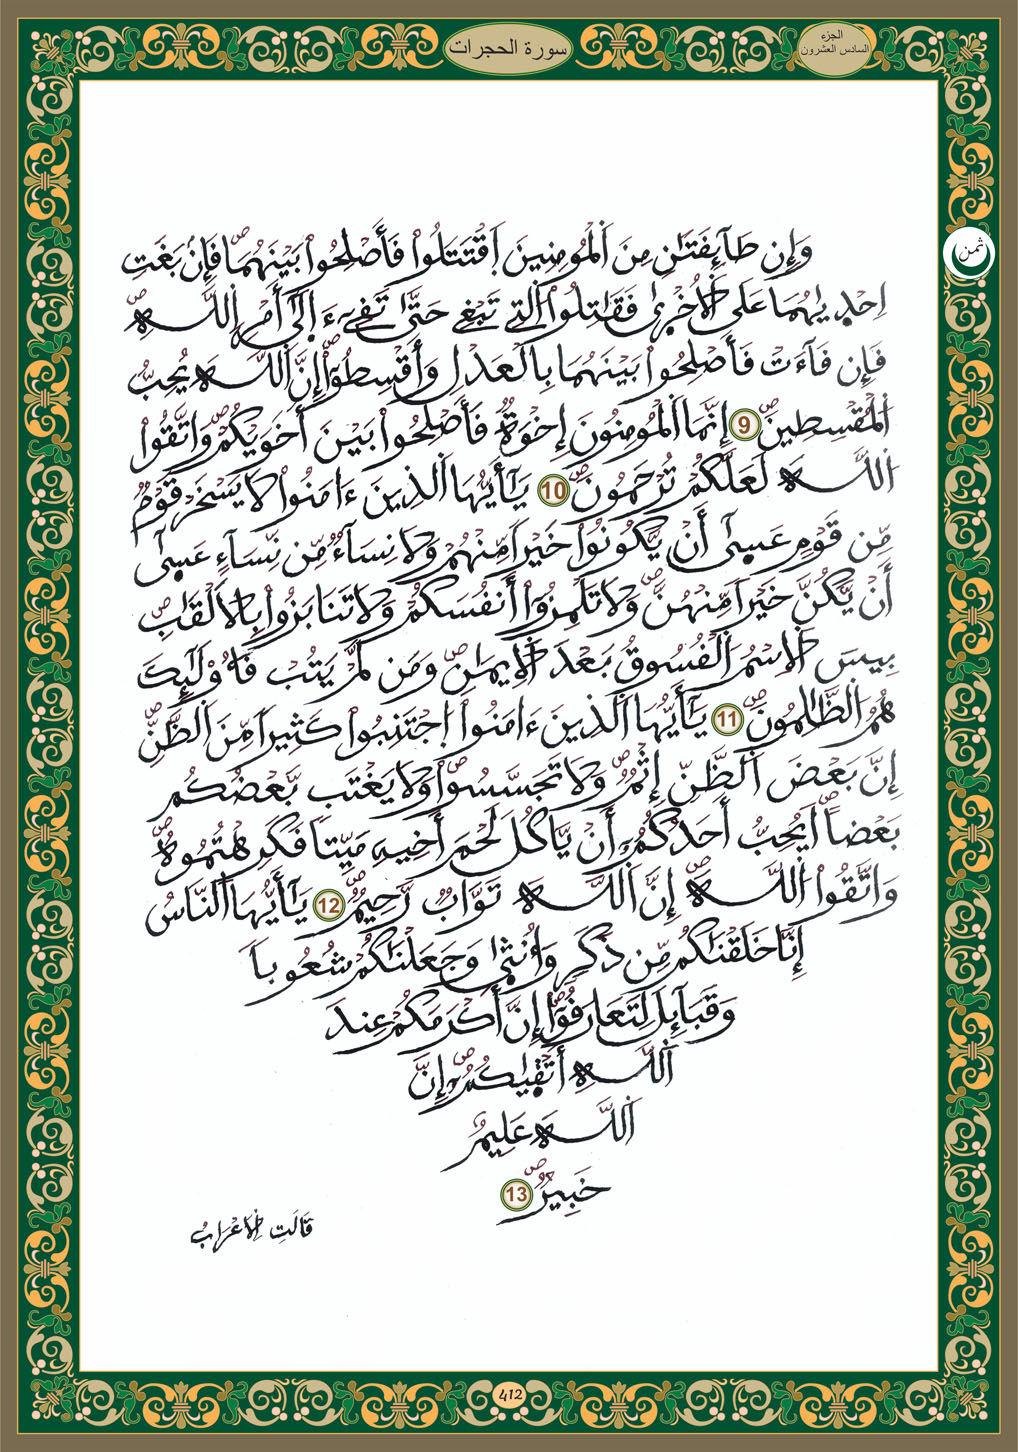 الجزء
السادس العشرون
سورة الحجرات
ثمن
وَإِن طَآئِفَتَٰنِ مِنَ اَ۬لْمُومِنِينَ اَ۪قْتَتَلُواْ فَأَصْلِحُواْ بَيْنَهُمَاۖ فَإِنۢ بَغَتِ
اِحْد۪يٰهُمَا عَلَى اَ۬لُاخْر۪يٰ فَقَٰتِلُواْ اُ۬لتِے تَبْغِے حَتَّىٰ تَفِےٓءَ اِلَىٰٓ أَمْرِ اِ۬للَّهِۖ
فَإِن فَآءَتْ فَأَصْلِحُواْ بَيْنَهُمَا بِالْعَدْلِ وَأَقْسِطُوٓاْۖ إِنَّ اَ۬للَّهَ يُحِبُّ
اُ۬لْمُقْسِطِينَۖ 9 إِنَّمَا اَ۬لْمُومِنُونَ إِخْوَةٞ فَأَصْلِحُواْ بَيْنَ أَخَوَيْكُمْۖ وَاتَّقُواْ
اُ۬للَّهَ لَعَلَّكُمْ تُرْحَمُونَۖ 10 يَٰٓأَيُّهَا اَ۬لذِينَ ءَامَنُواْ لَا يَسْخَرْ قَوْمٞ
مِّن قَوْمٍ عَس۪يٰٓ أَنْ يَّكُونُواْ خَيْراٗ مِّنْهُمْ وَلَا نِسَآءٞ مِّن نِّسَآءٍ عَس۪يٰٓ
أَنْ يَّكُنَّ خَيْراٗ مِّنْهُنَّۖ وَلَا تَلْمِزُوٓاْ أَنفُسَكُمْ وَلَا تَنَابَزُواْ بِالَالْقَٰبِۖ
بِيسَ اَ۬لِاسْمُ اُ۬لْفُسُوقُ بَعْدَ اَ۬لِايمَٰنِۖ وَمَن لَّمْ يَتُبْ فَأُوْلَٰٓئِكَ
هُمُ اُ۬لظَّٰلِمُونَۖ 11 يَٰٓأَيُّهَا اَ۬لذِينَ ءَامَنُواْ اُ۪جْتَنِبُواْ كَثِيراٗ مِّنَ اَ۬لظَّنِّۖ
إِنَّ بَعْضَ اَ۬لظَّنِّ إِثْمٞۖ وَلَا تَجَسَّسُواْۖ وَلَا يَغْتَب بَّعْضُكُم
بَعْضاًۖ اَيُحِبُّ أَحَدُكُمُۥٓ أَنْ يَّاكُلَ لَحْمَ أَخِيهِ مَيِّتاٗ فَكَرِهْتُمُوهُۖ
وَاتَّقُواْ اُ۬للَّهَۖ إِنَّ اَ۬للَّهَ تَوَّابٞ رَّحِيمٞۖ 12 يَٰٓأَيُّهَا اَ۬لنَّاسُ
إِنَّا خَلَقْنَٰكُم مِّن ذَكَرٖ وَأُنث۪يٰ وَجَعَلْنَٰكُمْ شُعُوباٗ
وَقَبَآئِلَ لِتَعَارَفُوٓاْۖ إِنَّ أَكْرَمَكُمْ عِندَ
اَ۬للَّهِ أَتْق۪يٰكُمُۥٓۖ إِنَّ
اَ۬للَّهَ عَلِيمٌ
خَبِيرٞۖ 13
قَالَتِ اِ۬لَاعْرَابُ
412